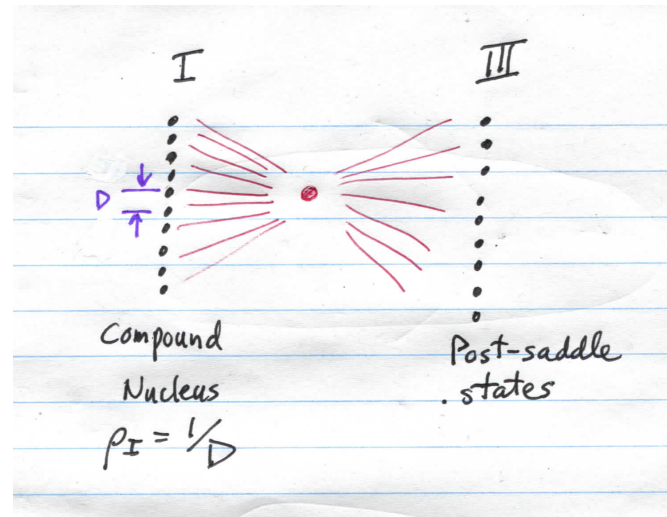 I
III
D
Compound
Nucleus
ρI = 1/D
Post-saddle
states